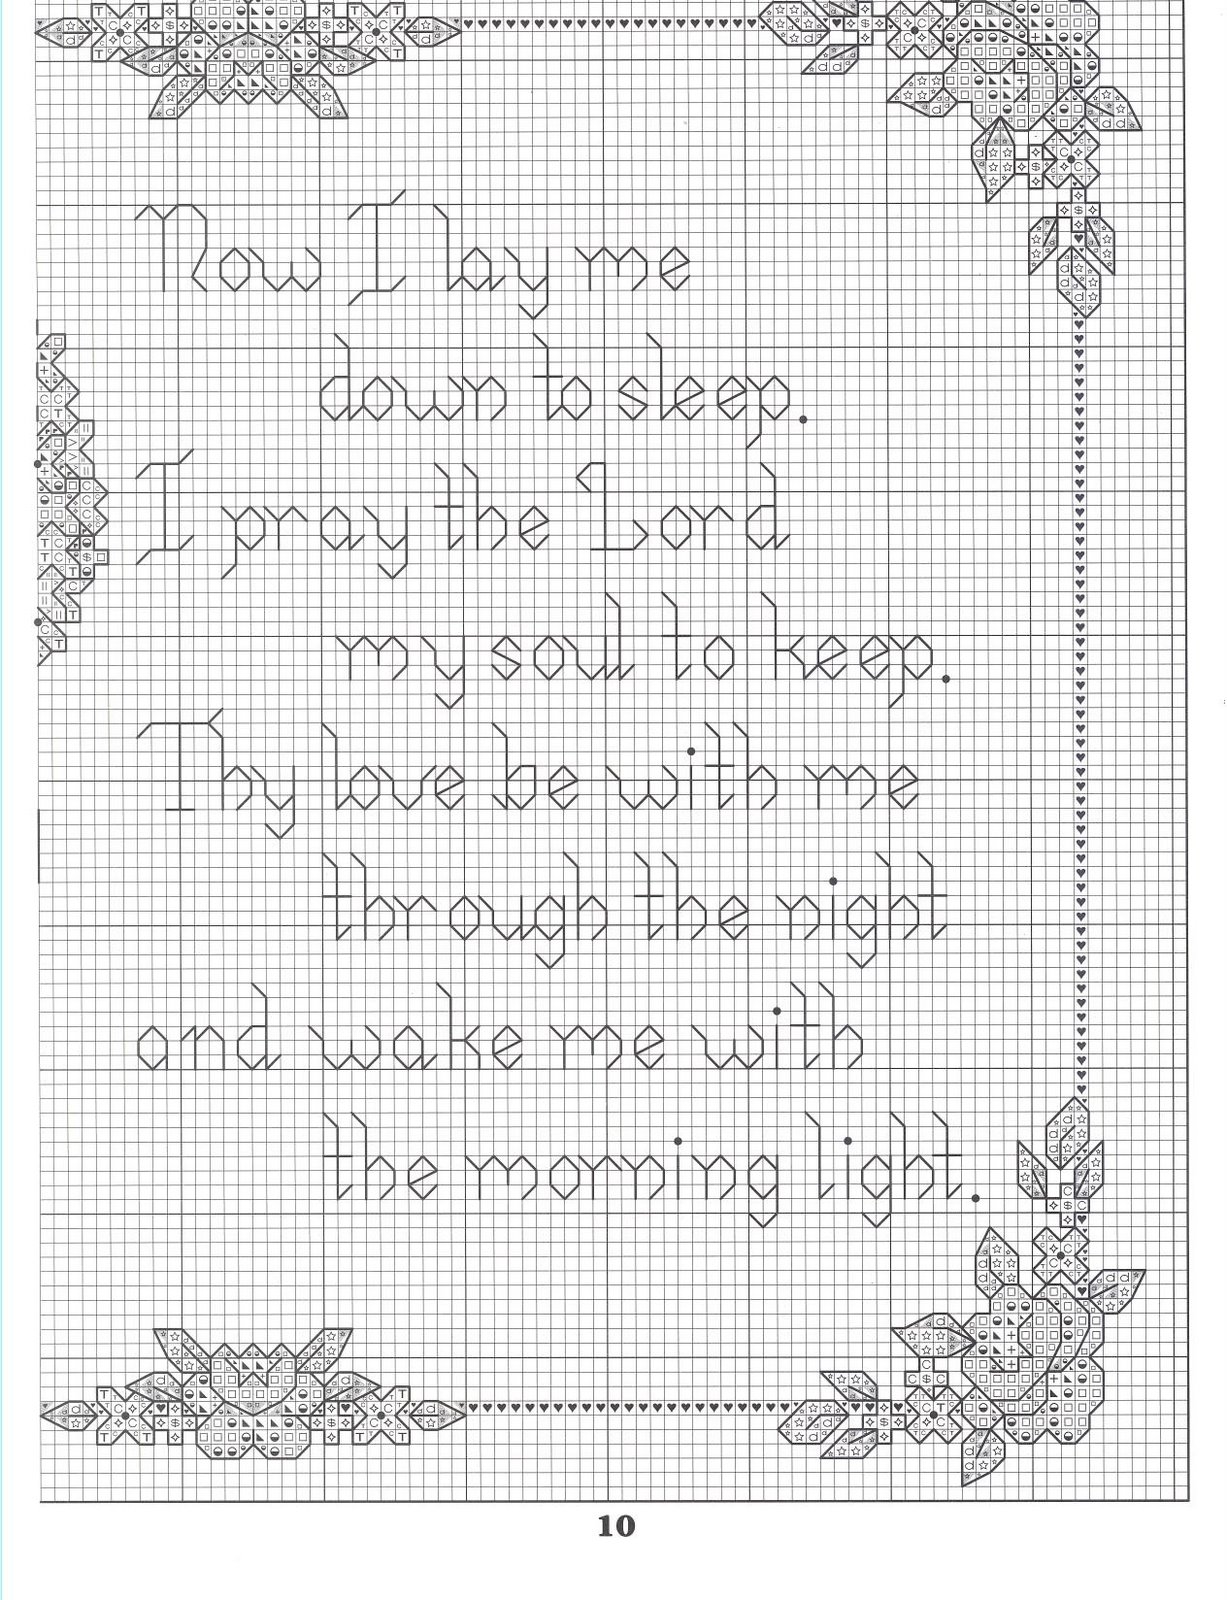 Now I lay me
down to sleep.
I pray the Lord
my soul to keep.
Thy love be with me
through the night
and wake me with
the morning light.
10